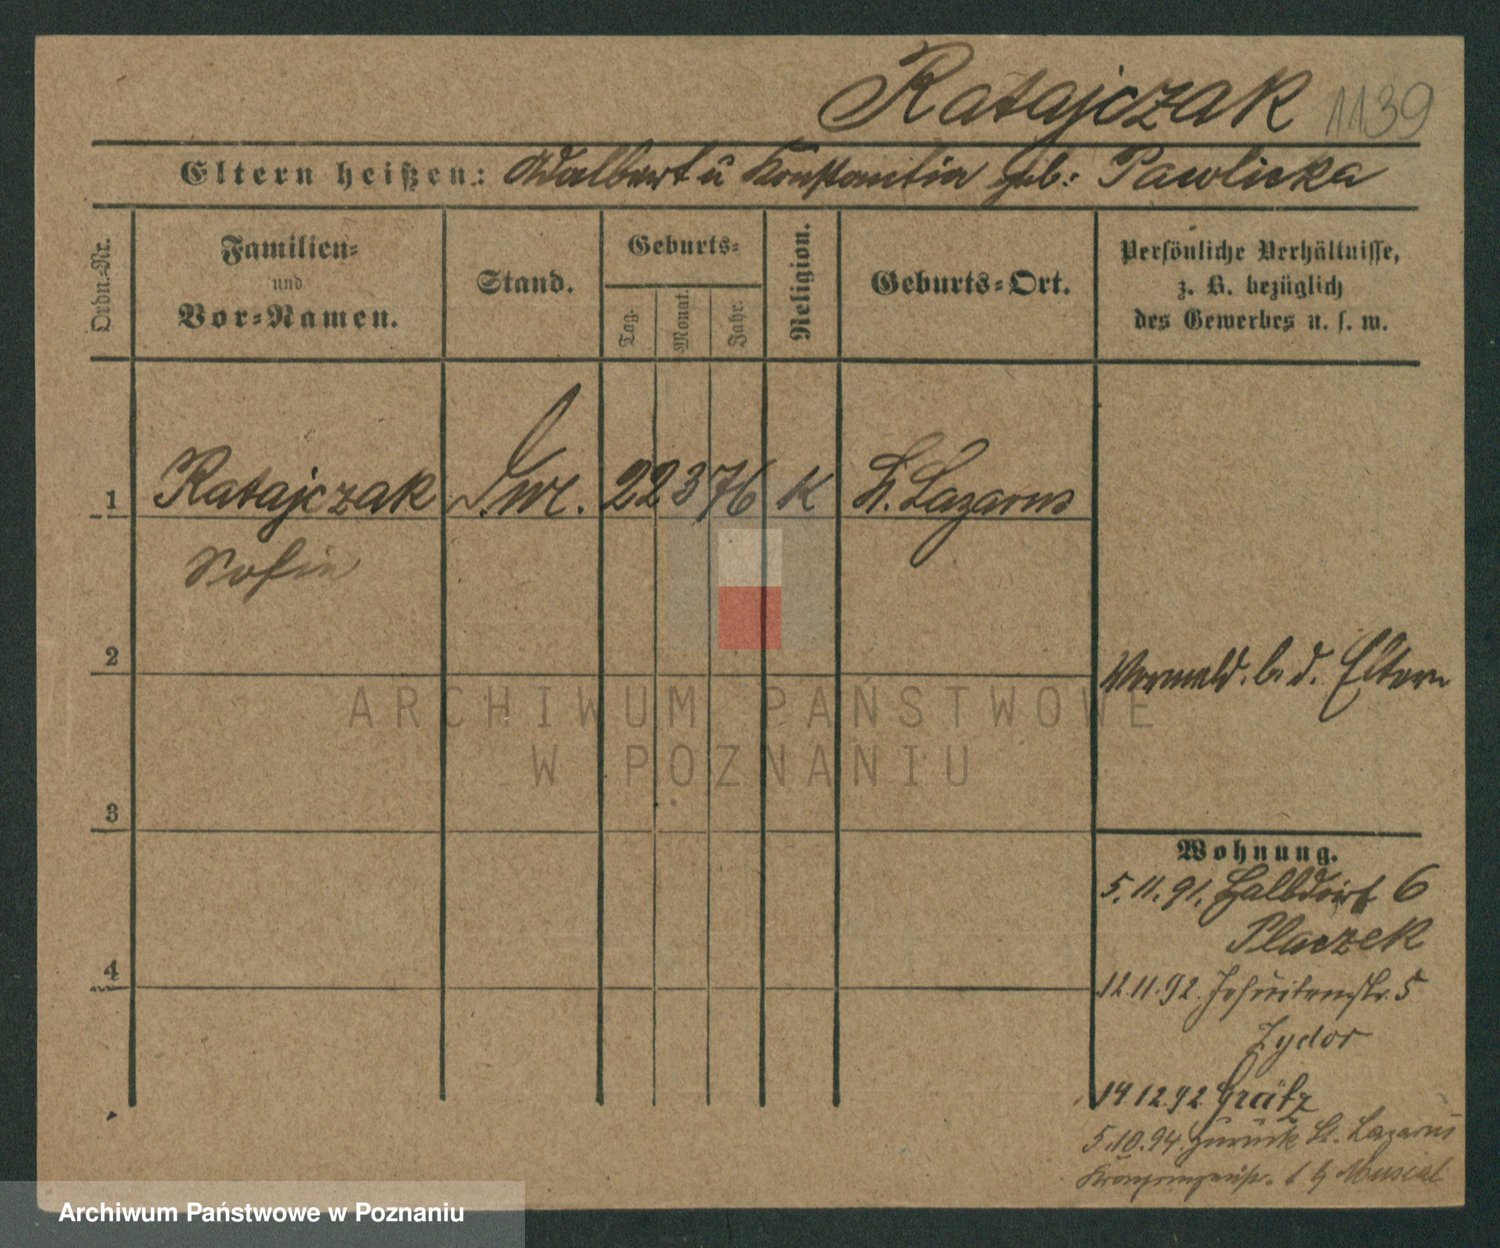 Ratajczak 1139
Eltern heißen: Adalbert u Konstantia geb: Pawlicka
Ordn.-Nr.
Familien-
und
Vor-Namen.
Stand.
Geburts-
Tag.
Monat.
Jahr.
Religion.
Geburts-Ort.
Persönliche Verhältnisse,
z. B. bezüglich
des Gewerbes u. s. w.
1 Ratajczak 22 3 76 K St. Lazarus
Sofie
2
Vermeld. b. d. Eltern
3
Wohnung.
5.11.91. Halbdorf 6
Placzek
4
12.11.92. Jesuitenstr. 5
Zydor
14.12.92 Grätz
5.10.94. zurück St. Lazarus
Musial
ARCHIWUM PAŃSTWOWE
W POZNANIU
Archiwum Państwowe w Poznaniu